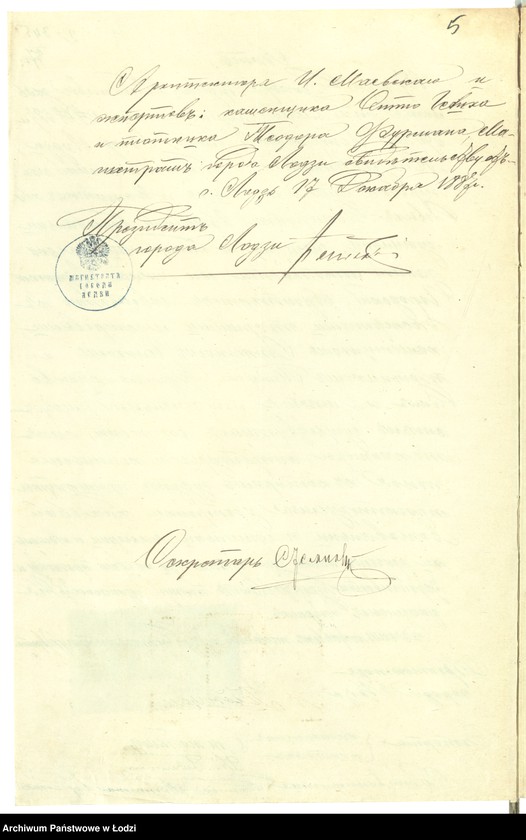 5
Архитектора И. Маевскаго и
экспертовъ: каменщика Отто
и плотника Теодора Фурмана, Ма-
гистратъ города Лодзи свидѣтельствуетъ.
г. Лодзь 17 Декабря 188 г.
Президентъ
города Лодзи
МАГИСТРАТА
ГОРОДА
ЛОДЗИ
Секретарь
Archiwum Państwowe w Łodzi